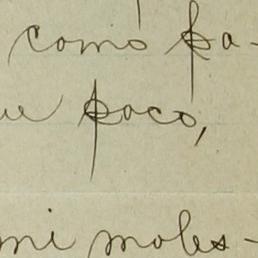 como pa-
ue poco,
mi moles-